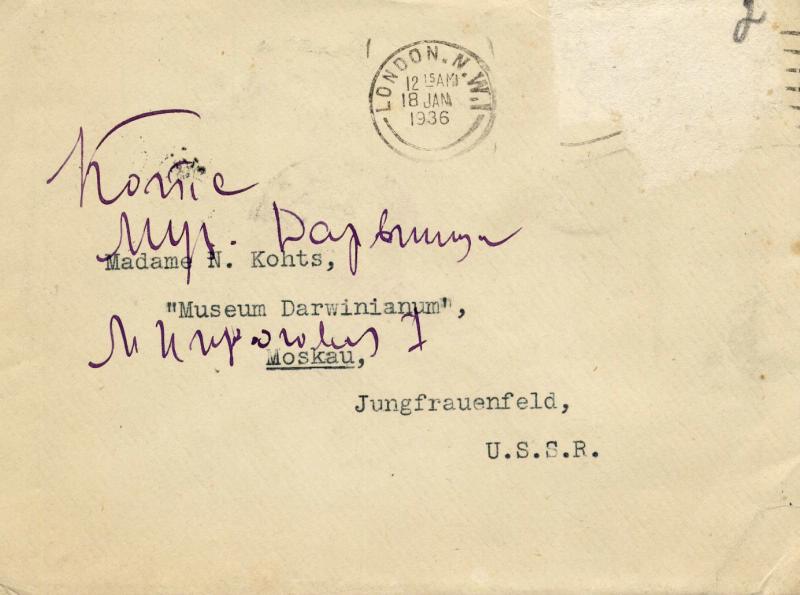 LONDON. N.W.1
12 15 AM
18 JAN
1936
Муз. Дарвина
Madame N. Kohts,
"Museum Darwinianum",
М Пироговская 1
Moskau,
Jungfrauenfeld,
U.S.S.R.